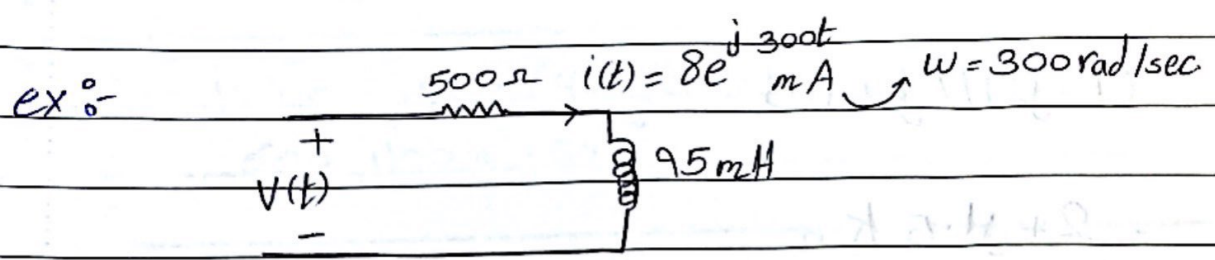 ex:- 500Ω i(t) = 8e^{j300t} mA ω = 300 rad/sec
+
V(t)
95mH
-